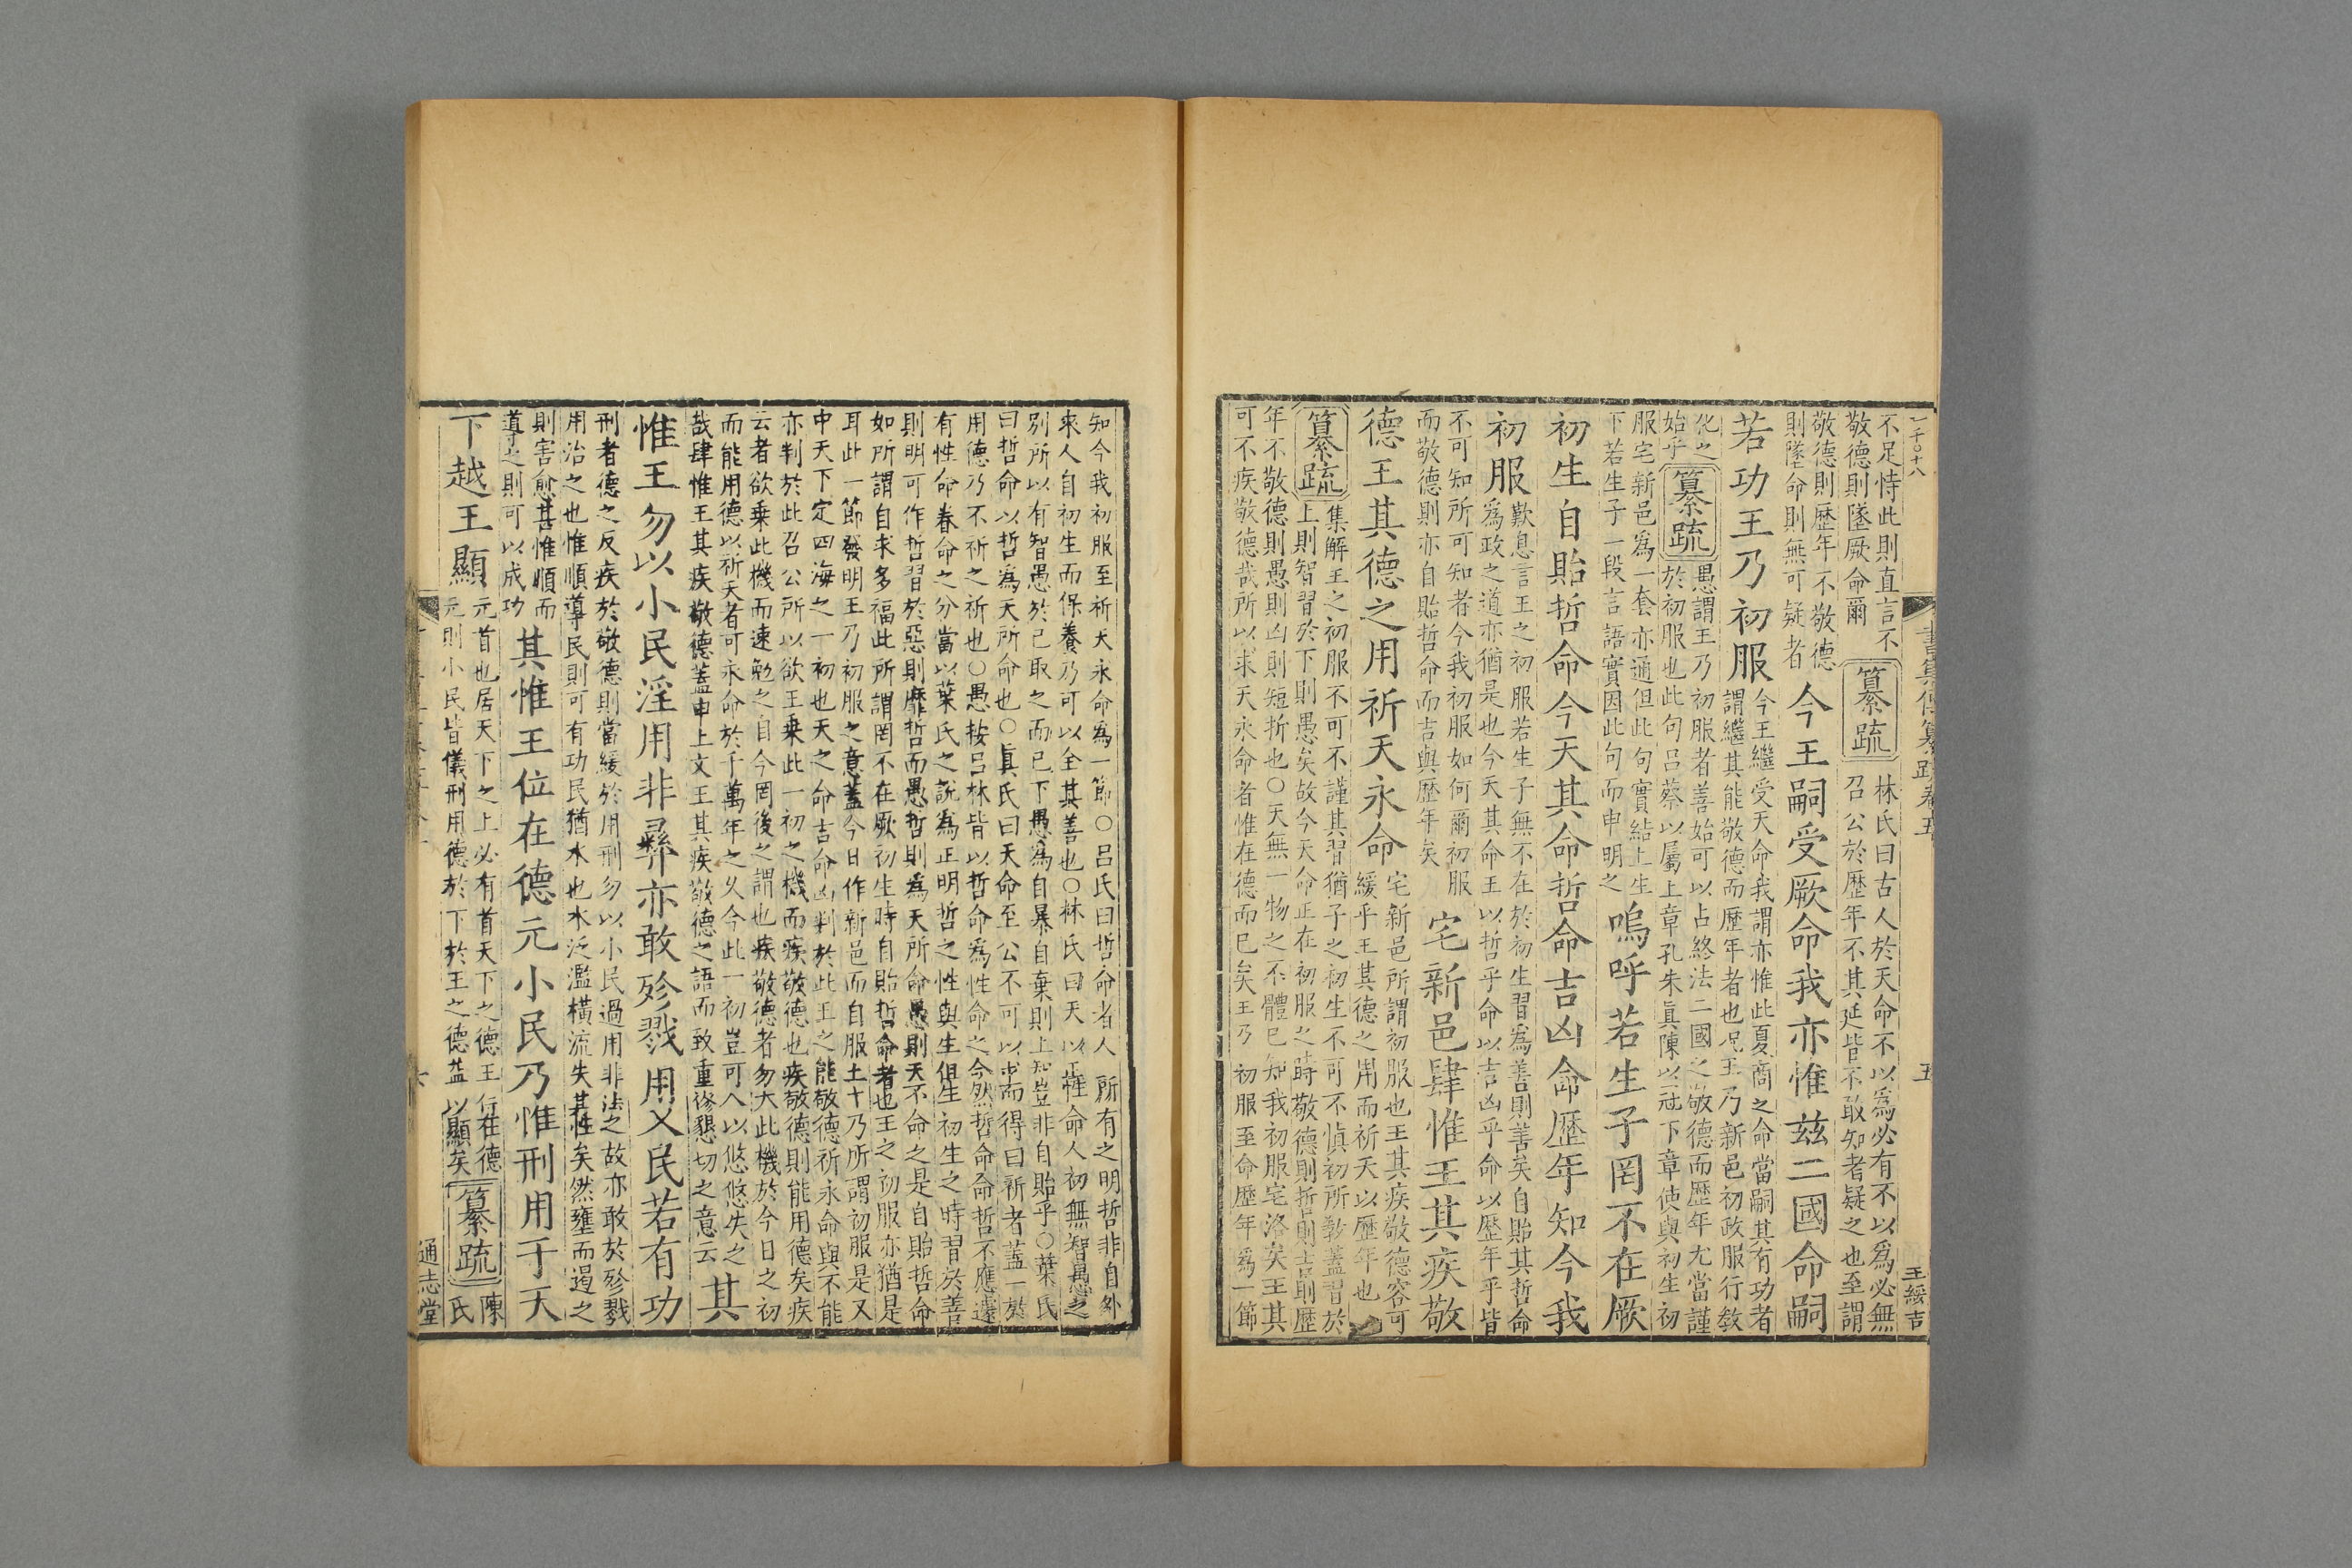 一千〇十八
王綏吉
不足恃此則直言不
敬德則墜厥命爾
纂疏
林氏曰古人於天命不以為必有不以為必無
召公於歴年不其延皆不敢知者疑之也至謂
敬德則歴年不敬德
則墜命則無可疑者
今王嗣受厥命我亦惟兹二國命嗣
若功王乃初服
今王繼受天命我謂亦惟此夏商之命當嗣其有功者
謂繼其能敬德而歴年者也况王乃新邑初政服行敎
化之
始乎
纂疏
愚謂王乃初服者善始可以占終法二國之敬德而歴年尤當謹
於初服也此句呂蔡以屬上章孔朱眞陳以冠下章使與初生初
服宅新邑爲一套亦通但此句實結上生
下若生子一段言語實因此句而申明之
嗚呼若生子罔不在厥
初生自貽哲命今天其命哲命吉凶命歴年知今我
初服
歎息言王之初服若生子無不在於初生習爲善則善矣自貽其哲命
爲政之道亦猶是也今天其命王以哲乎命以吉凶乎命以歴年乎皆
不可知所可知者今我初服如何爾初服
而敬德則亦自貽哲命而吉與歴年矣
宅新邑肆惟王其疾敬
德王其德之用祈天永命
宅新邑所謂初服也王其疾敬德容可
緩乎王其德之用而祈天以歴年也
纂疏
集解王之初服不可不謹其習猶子之初生不可不慎初所敎蓋習於
上則智習於下則愚矣故今天命正在初服之時敬德則哲則吉則歴
年不敬德則愚則凶則短折也○天無一物之不體已知我初服宅洛矣王其
可不疾敬德哉所以求天永命者惟在德而已矣王乃初服至命歴年爲一節
知今我初服至祈天永命爲一節○呂氏曰哲命者人所有之明哲非自外
來人自初生而保養乃可以全其善也○林氏曰天以性命人初無智愚之
別所以有智愚於已取之而已下愚爲自暴自棄則上知豈非自貽乎○葉氏
曰哲命以哲爲天所命也○眞氏曰天命至公不可以求而得曰祈者蓋一於
用德乃不祈之祈也○愚按呂林皆以哲命爲性命之命然哲命命哲不應遽
有性命眷命之分當以葉氏之說爲正明哲之性與生俱生初生之時習於善
則明可作哲習於惡則靡哲而愚哲則爲天所命愚則天不命之是自貽哲命
如所謂自求多福此所謂罔不在厥初生時自貽哲命者也王之初服亦猶是
耳此一節發明王乃初服之意蓋今日作新邑而自服土中乃所謂初服是又
中天下定四海之一初也天之命吉命凶判於此王之能敬德祈永命與不能
亦判於此召公所以欲王乗此一初之機而疾敬德也疾敬德則能用德矣疾
云者欲乗此機而速勉之自今罔後之謂也疾敬德者勿失此機於今日之初
而能用德以祈天者可永命於千萬年之久今此一初豈可人以悠悠失之
哉肆惟王其疾敬德蓋申上文王其疾敬德之語而致重複懇切之意云
其
惟王勿以小民淫用非彝亦敢殄戮用乂民若有功
刑者德之反疾於敬德則當緩於用刑勿以小民過用非法之故亦敢於殄戮
用治之也惟順導民則可有功民猶水也水泛濫橫流失其性矣然壅而遏之
則害愈甚惟順而
導之則可以成功
其惟王位在德元小民乃惟刑用于天
下越王顯
元首也居天下之上必有首天下之德王位在德
元則小民皆儀刑用德於下於王之德益以顯矣
纂疏
陳
氏
通志堂